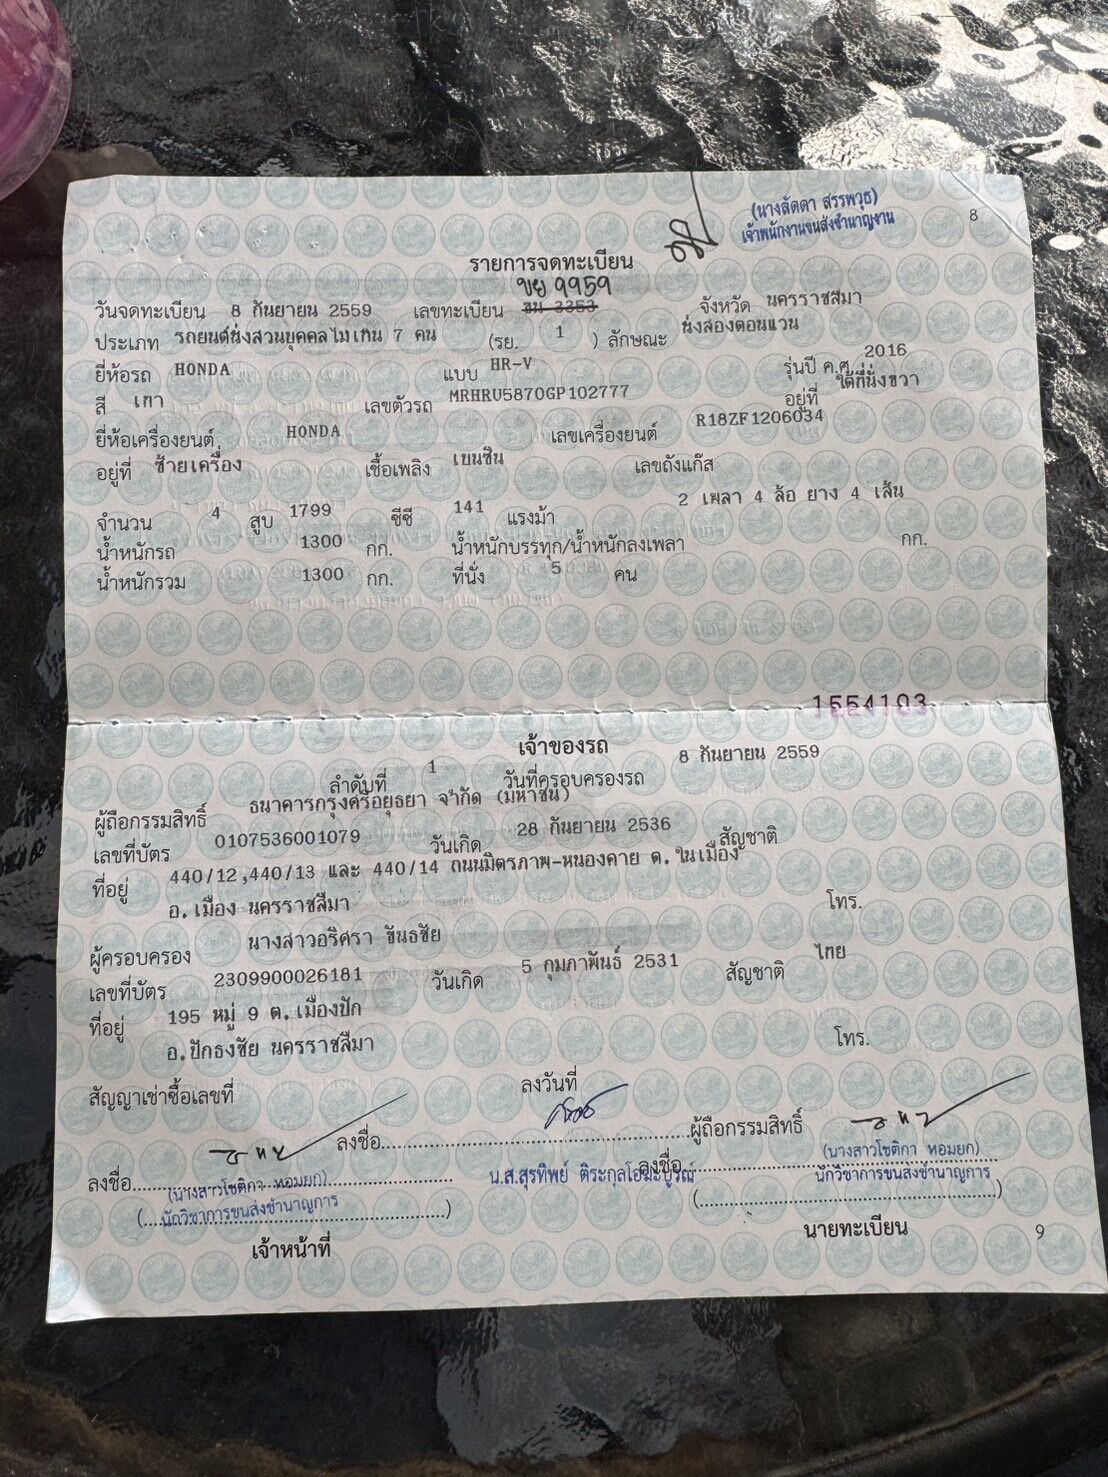 (นางลัดดา สรรพวุธ)
เจ้าพนักงานขนส่งชำนาญงาน
8
รายการจดทะเบียน
ขย 9959
วันจดทะเบียน 8 กันยายน 2559 เลขทะเบียน ขน 3353 จังหวัด นครราชสีมา
ประเภท รถยนต์นั่งส่วนบุคคลไม่เกิน 7 คน (รย. 1 ) ลักษณะ นั่งสองตอนแวน
ยี่ห้อรถ HONDA แบบ HR-V รุ่นปี ค.ศ. 2016
สี เทา เลขตัวรถ MRHRU5870GP102777 อยู่ที่ ใต้ที่นั่งขวา
ยี่ห้อเครื่องยนต์ HONDA เลขเครื่องยนต์ R18ZF1206034
อยู่ที่ ซ้ายเครื่อง เชื้อเพลิง เบนซิน เลขถังแก๊ส
จำนวน 4 สูบ 1799 ซีซี 141 แรงม้า 2 เพลา 4 ล้อ ยาง 4 เส้น
น้ำหนักรถ 1300 กก. น้ำหนักบรรทุก/น้ำหนักลงเพลา กก.
น้ำหนักรวม 1300 กก. ที่นั่ง 5 คน
1554103
เจ้าของรถ
ลำดับที่ 1 วันที่ครอบครองรถ 8 กันยายน 2559
ผู้ถือกรรมสิทธิ์ ธนาคารกรุงศรีอยุธยา จำกัด (มหาชน)
เลขที่บัตร 0107536001079 วันเกิด 28 กันยายน 2536 สัญชาติ
ที่อยู่ 440/12,440/13 และ 440/14 ถนนมิตรภาพ-หนองคาย ต.ในเมือง
อ.เมือง นครราชสีมา โทร.
ผู้ครอบครอง นางสาวอริศรา ขันธชัย
เลขที่บัตร 2309900026181 วันเกิด 5 กุมภาพันธ์ 2531 สัญชาติ ไทย
ที่อยู่ 195 หมู่ 9 ต.เมืองปัก
อ.ปักธงชัย นครราชสีมา โทร.
สัญญาเช่าซื้อเลขที่ ลงวันที่
ลงชื่อ ผู้ถือกรรมสิทธิ์
น.ส.สุรทิพย์
ลงชื่อ ลงชื่อ
(นางสาวโชติกา หอมยก) (นางสาวโชติกา หอมยก)
นักวิชาการขนส่งชำนาญการ นักวิชาการขนส่งชำนาญการ
เจ้าหน้าที่ นายทะเบียน
9